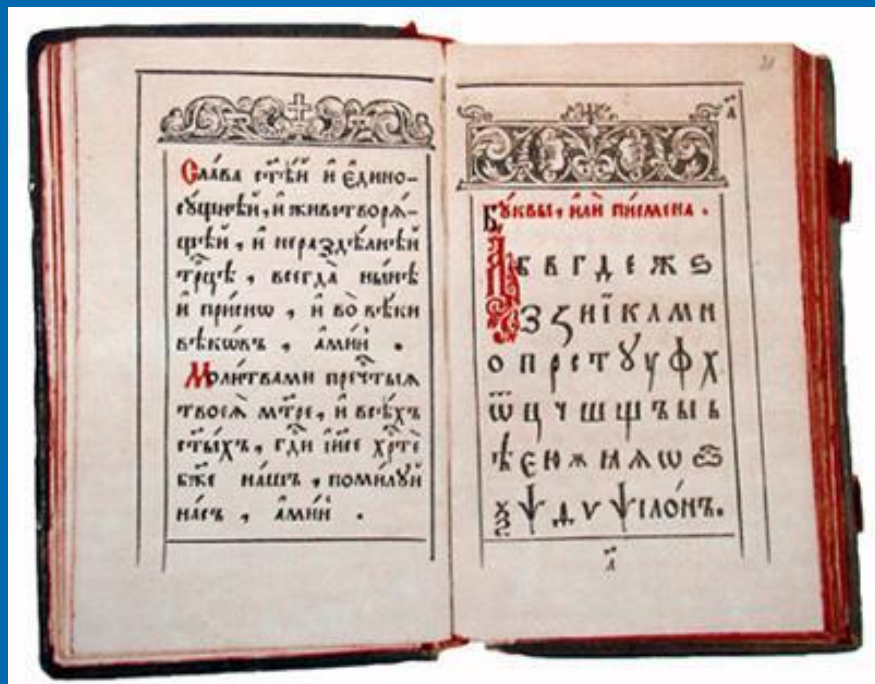 Сла́ва ст҃ѣ́й и҆ є҆дино-
сꙋ́щнѣй, и҆ животворѧ́-
щѣй, и҆ нераздѣ́лнѣй
трⷪ҇цѣ, всегда̀ ны́нѣ
и҆ при́снѡ, и҆ во вѣ́ки
вѣкѡ́въ, а҆ми́нь.
Моли́твами пречⷭ҇тыѧ
твоеѧ̀ мт҃ре, и҆ всѣ́хъ
ст҃ы́хъ, гдⷭ҇и і҆и҃се хрⷭ҇тѐ
бж҃е на́шъ, поми́лꙋй
на́съ, а҆ми́нь.
Бꙋ́квы, и҆лѝ пи́смена.
А Б В Г Д Е Ж Ѕ
З Ꙁ И Ї К Л М Н
О П Р С Т Ꙋ У Ф Х
Ѿ Ц Ч Ш Щ Ъ Ы Ь
Ѣ Є Ю Ѫ Ꙗ Ѧ Ѡ
Ѯ Ѱ Ѳ Ѵ ѱіло́нъ.